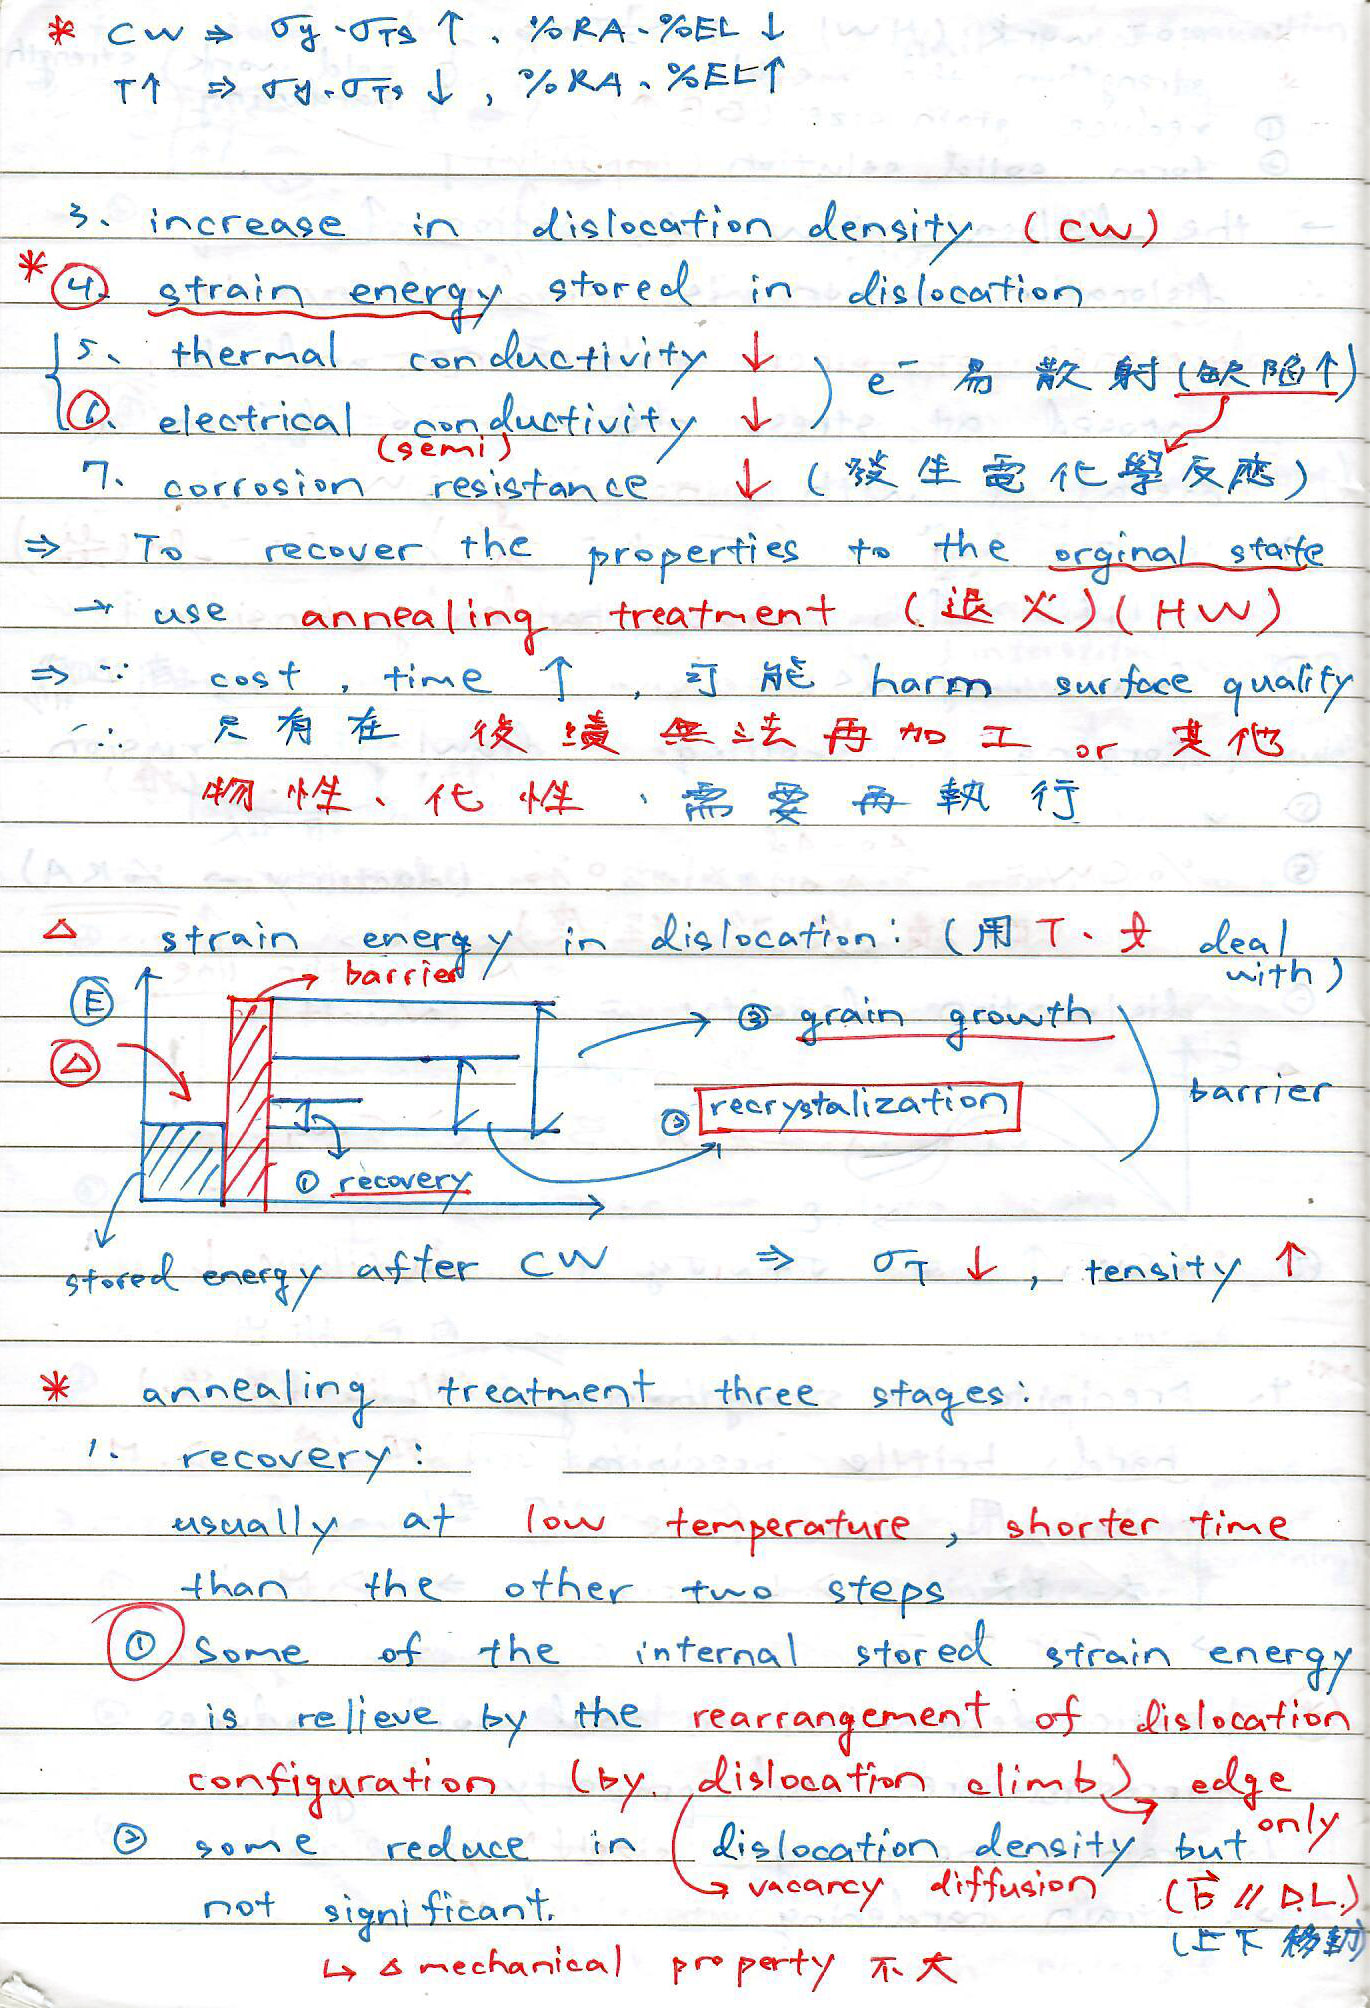 * CW ⇒ σy、σTS ↑、%RA、%EL ↓
T↑ ⇒ σy、σTS ↓, %RA、%EL↑
3、 increase in dislocation density (CW)
* 4. strain energy stored in dislocation
5、 thermal conductivity ↓
e⁻ 易散射(缺陷↑)
6. electrical conductivity ↓
(semi)
7、 corrosion resistance ↓ (發生電化學反應)
⇒ To recover the properties to the orginal state
→ use annealing treatment (退火)(HW)
⇒ ∵ cost, time ↑, 可能 harm surface quality
∴ 只有在 後續無法再加工 or 其他
物性、化性、需要再執行
△ strain energy in dislocation: (用 T、t deal
with)
barrier
E
③ grain growth
△
barrier
② recrystalization
① recovery
stored energy after CW ⇒ σT ↓, tensity ↑
* annealing treatment three stages:
1. recovery:
usually at low temperature, shorter time
than the other two steps
① Some of the internal stored strain energy
is relieve by the rearrangement of dislocation
configuration (by. dislocation climb) → edge
only
② some reduce in dislocation density but
→ vacancy diffusion (b⃗ // D.L.)
not significant.
(上下移動)
↳ △ mechanical property 不大